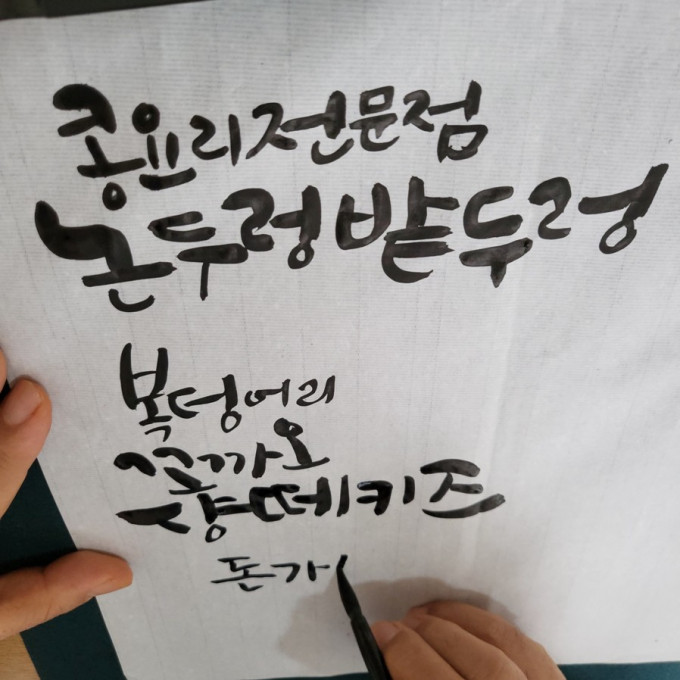 콩요리전문점
논두렁밭두렁
복덩어리
쭌까오
샹떼키즈
돈가